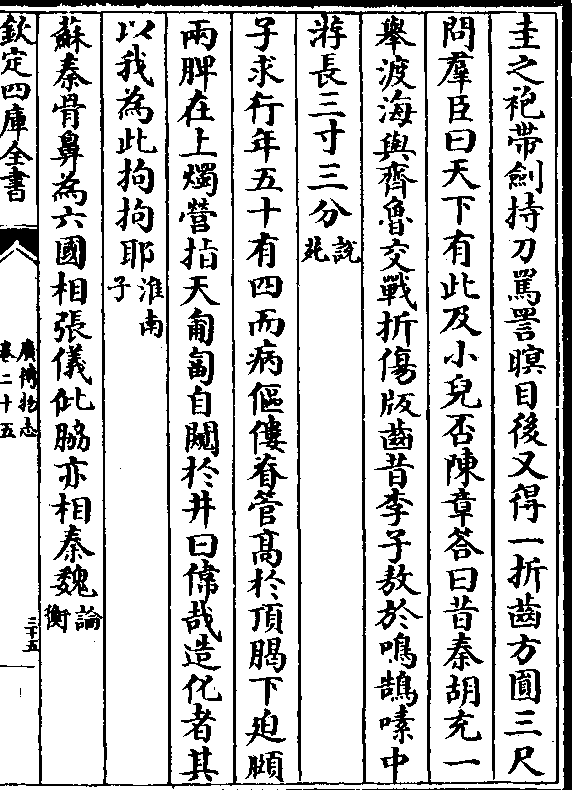 圭之袍帶劍持刀罵詈瞑目後又得一折齒方圓三尺
問羣臣曰天下有此及小兒否陳章答曰昔秦胡充一
舉渡海與齊魯交戰折傷版齒昔李子敖於鳴鵠嗉中
游長三寸三分說苑
子求行年五十有四而病傴僂脊管高於頂䐛下迫頤
兩脾在上燭營指天匍匐自闚於井曰偉哉造化者其
以我為此拘拘耶淮南子
蘇秦骨鼻為六國相張儀仳脇亦相秦魏論衡
欽定四庫全書
廣博物志
卷二十五
三十五